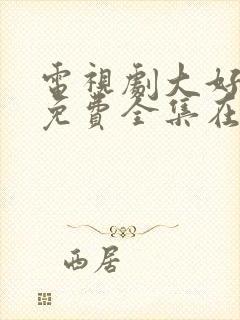 電視劇大好
免費全集在
西居